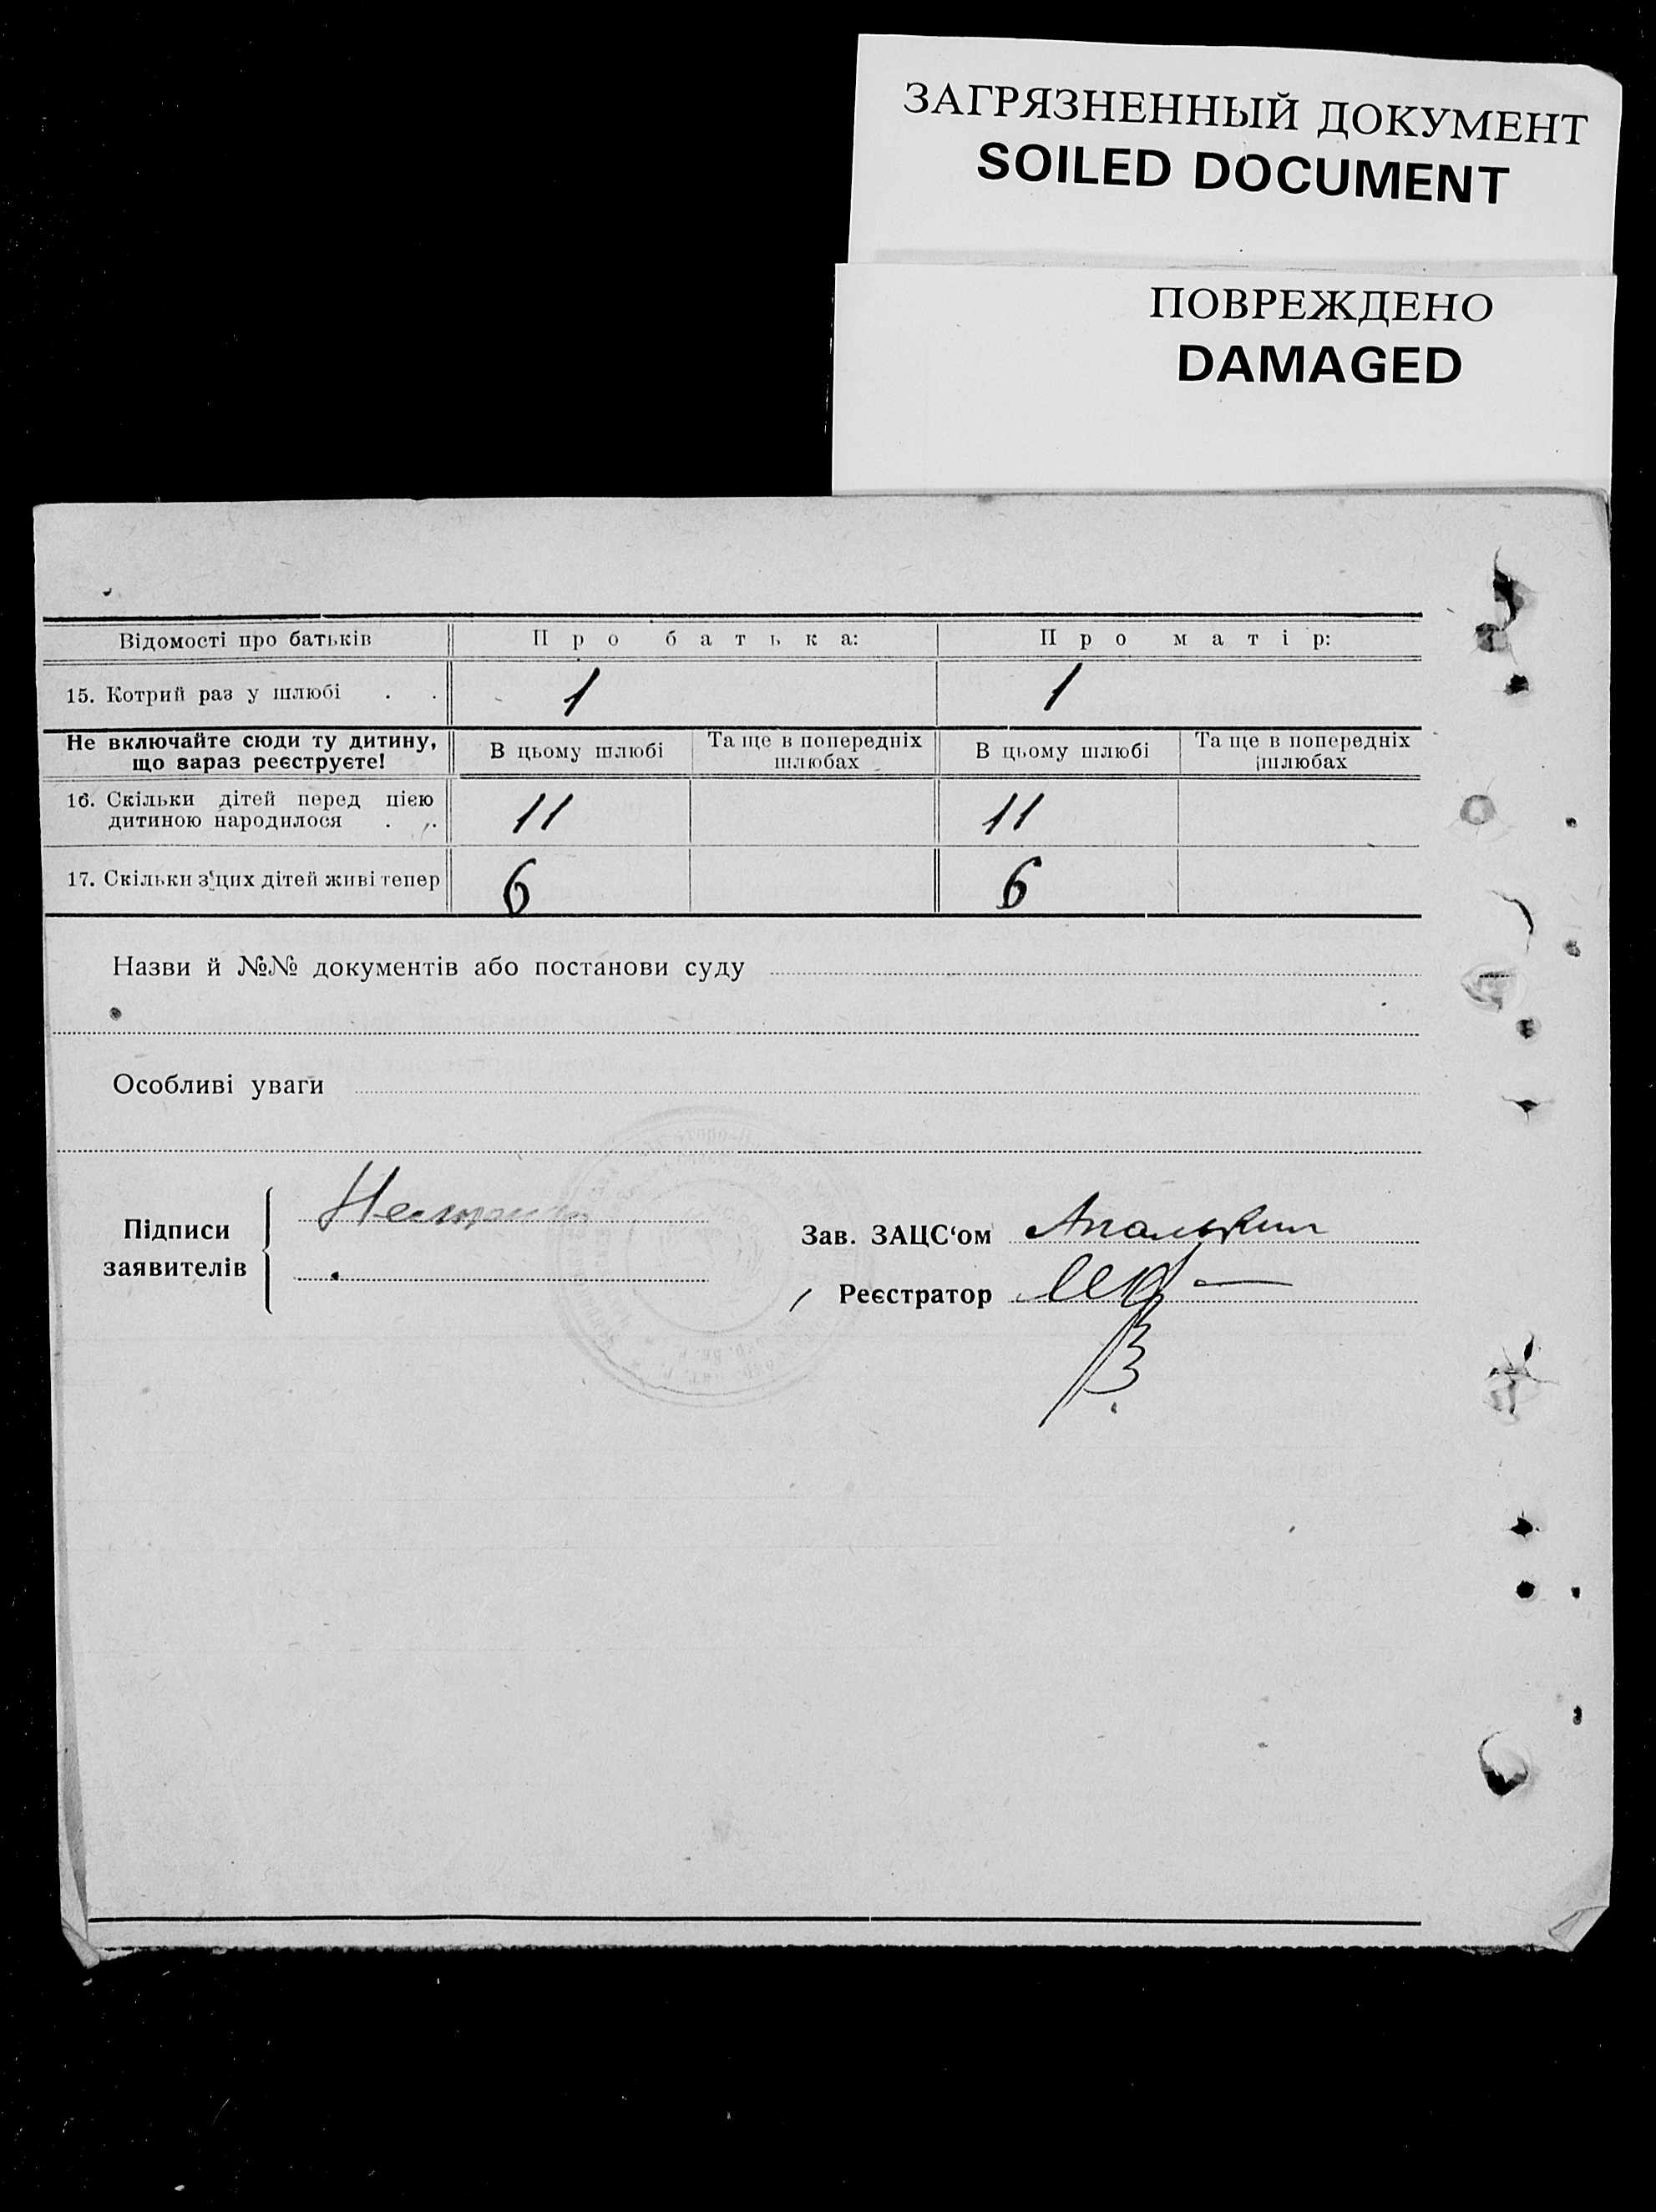 ЗАГРЯЗНЕННЫЙ ДОКУМЕНТ
SOILED DOCUMENT
ПОВРЕЖДЕНО
DAMAGED
Відомості про батьків Про батька: Про матір:
15. Котрий раз у шлюбі . . 1 1
Не включайте сюди ту дитину, що зараз реєструєте! В цьому шлюбі Та ще в попередніх шлюбах В цьому шлюбі Та ще в попередніх шлюбах
16. Скільки дітей перед цією дитиною народилося . . 11 11
17. Скільки з'цих дітей живі тепер 6 6
Назви й №№ документів або постанови суду
Особливі уваги
Підписи заявителів
Зав. ЗАЦС'ом
Реєстратор